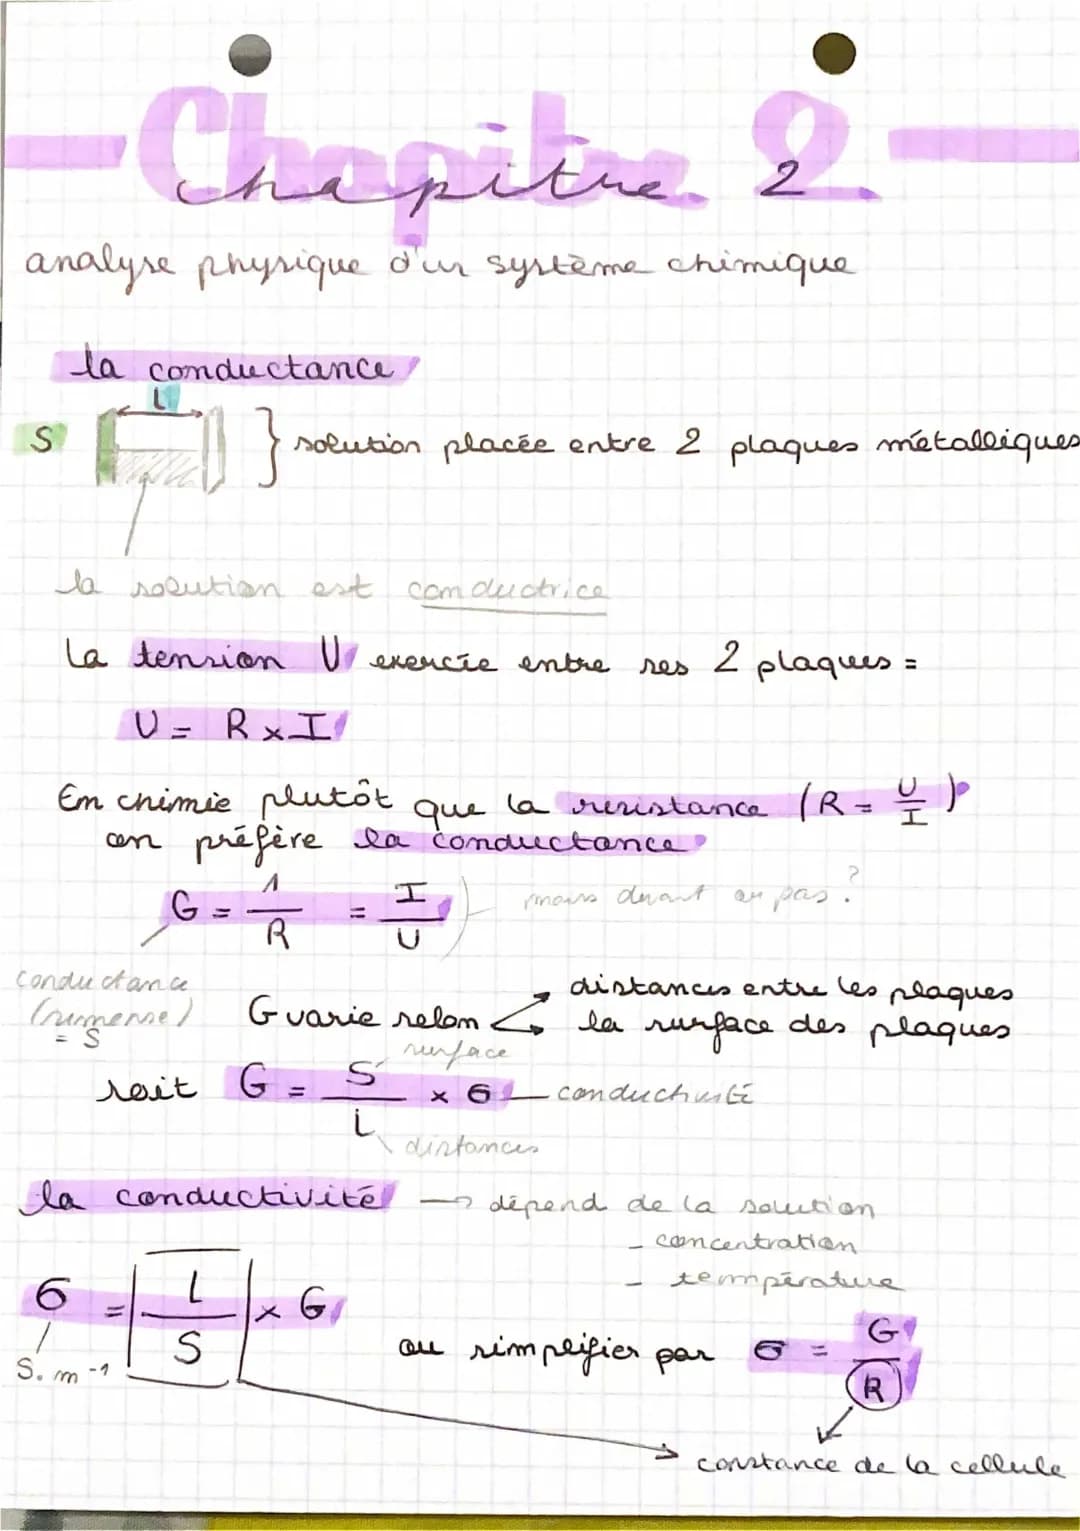 Chapitre 2
analyse physique d'un système chimique
la conductance
L
S
} solution placée entre 2 plaques métalliques
la solution est conductrice
la tension U exercée entre ses 2 plaques =
U = R x I
En chimie plutôt que la resistance (R = U/I)
on préfère la conductance
G = 1/R = I/U
conductance
= S
G varie selon
distances entre les plaques
la surface des plaques
surface
soit G = S/L x σ conductivité
distances
la conductivité → dépend de la solution
- concentration
- température
σ = L/S x G
S.m-1
ou simplifier par σ = G/R
constance de la cellule